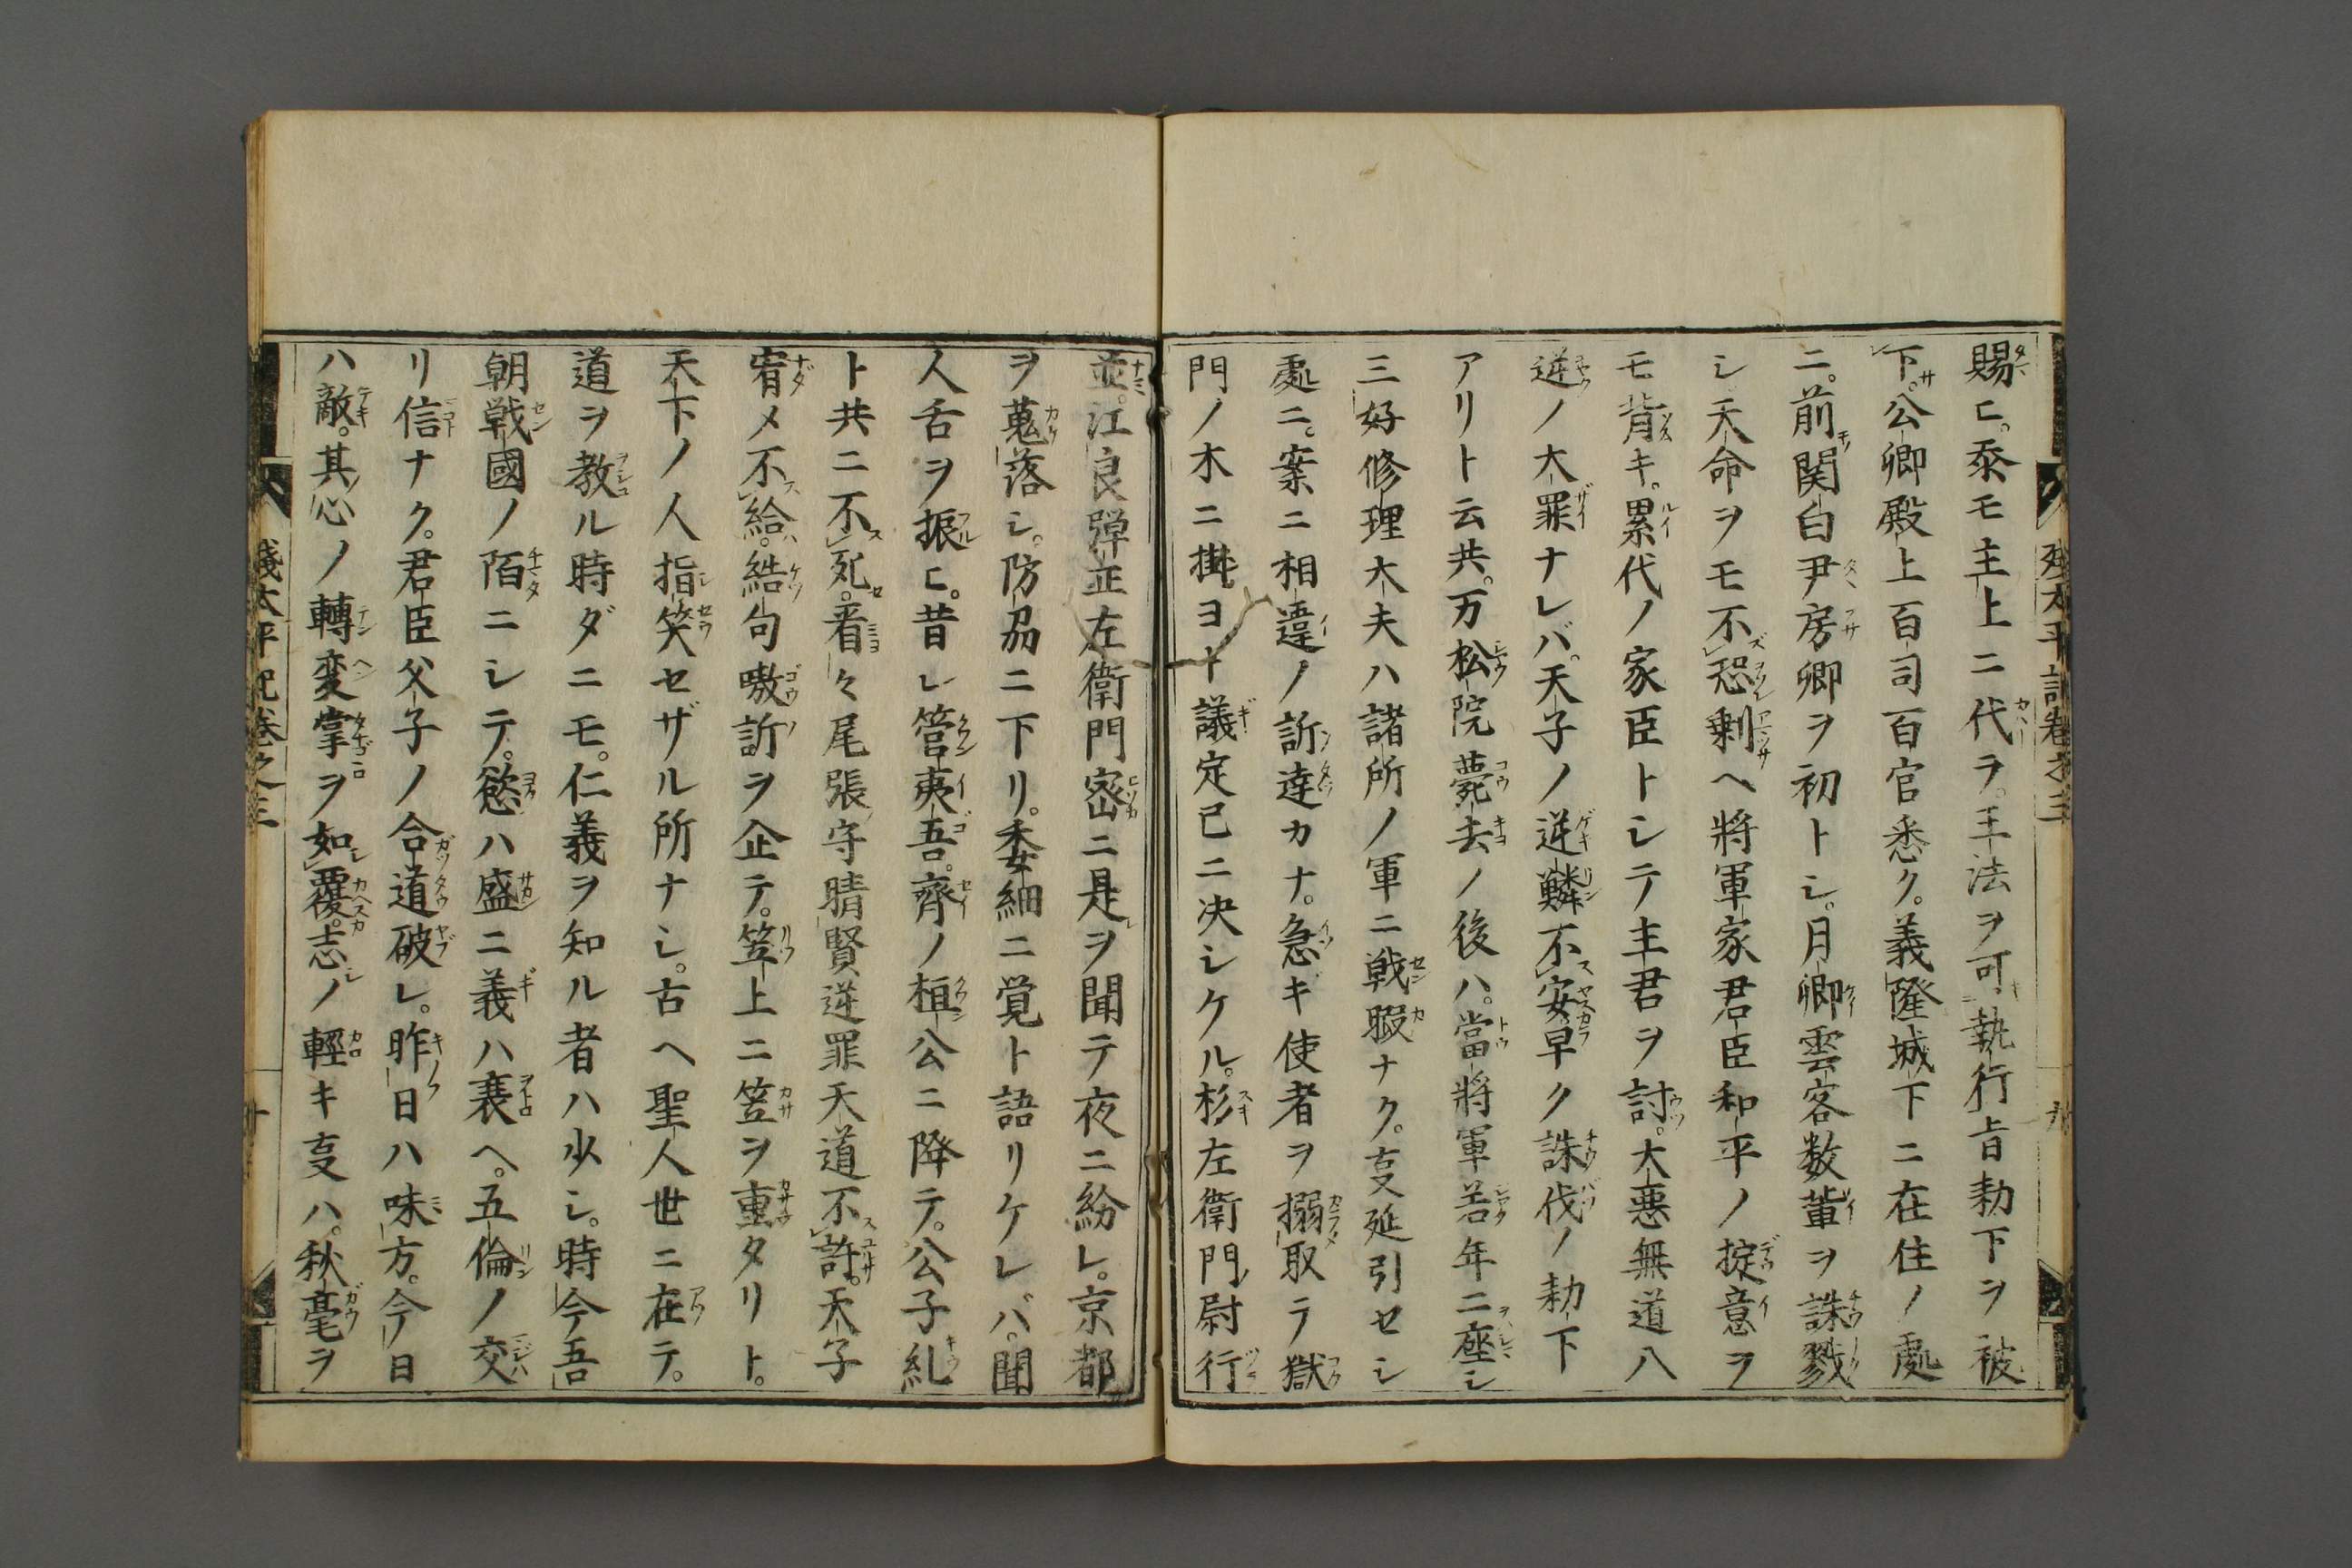 賜ヒ。忝モ主上ニ代ラ。王法ヲ可執行旨勅下ヲ被
下。公卿殿上百司百官悉ク。義隆城下ニ在住ノ處
ニ。前関白尹房卿ヲ初トシ。月卿雲客数輩ヲ誅戮
シ天命ヲモ不恐剰ヘ將軍家君臣和平ノ掟意ヲ
モ背キ。累代ノ家臣トシテ主君ヲ討。大悪無道八
逆ノ大罪ナレバ。天子ノ逆鱗不安早ク誅伐ノ勅下
アリト云共。万松院薨去ノ後ハ。當將軍若年ニ座シ
三好修理大夫ハ諸所ノ軍ニ戦暇ナク。叓延引セシ
處ニ。案ニ相違ノ訴達カナ。急ギ使者ヲ搦取テ獄
門ノ木ニ掛ヨト議定已ニ决シケル。杉左衛門尉行
並。江良弾正左衛門密ニ是ヲ聞テ夜ニ紛レ。京都
ヲ蒐落シ。防刕ニ下リ。委細ニ覚ト語リケレバ。聞
人舌ヲ振ヒ。昔シ管夷吾。齊ノ桓公ニ降テ。公子糺
ト共ニ不死。着々尾張守晴賢逆罪天道不許。天子
宥メ不給。結句嗷訴ヲ企テ。笠上ニ笠ヲ重タリト。
天下ノ人指笑セザル所ナシ。古ヘ聖人世ニ在テ。
道ヲ教ル時ダニモ。仁義ヲ知ル者ハ少シ。時今吾
朝戦國ノ陌ニシテ。慾ハ盛ニ義ハ衰ヘ。五倫ノ交
リ信ナク。君臣父子ノ合道破レ。昨日ハ味方。今日
ハ敵。其心ノ轉変掌ヲ如覆。志ノ輕キ叓ハ。秋毫ヲ
残太平記巻之三